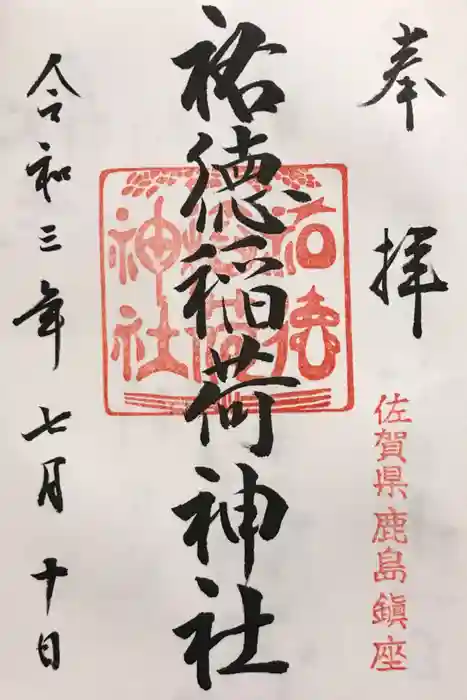 奉拝
佐賀県鹿島鎮座
祐徳稲荷神社
祐徳
稲荷
神社
令和三年七月十日